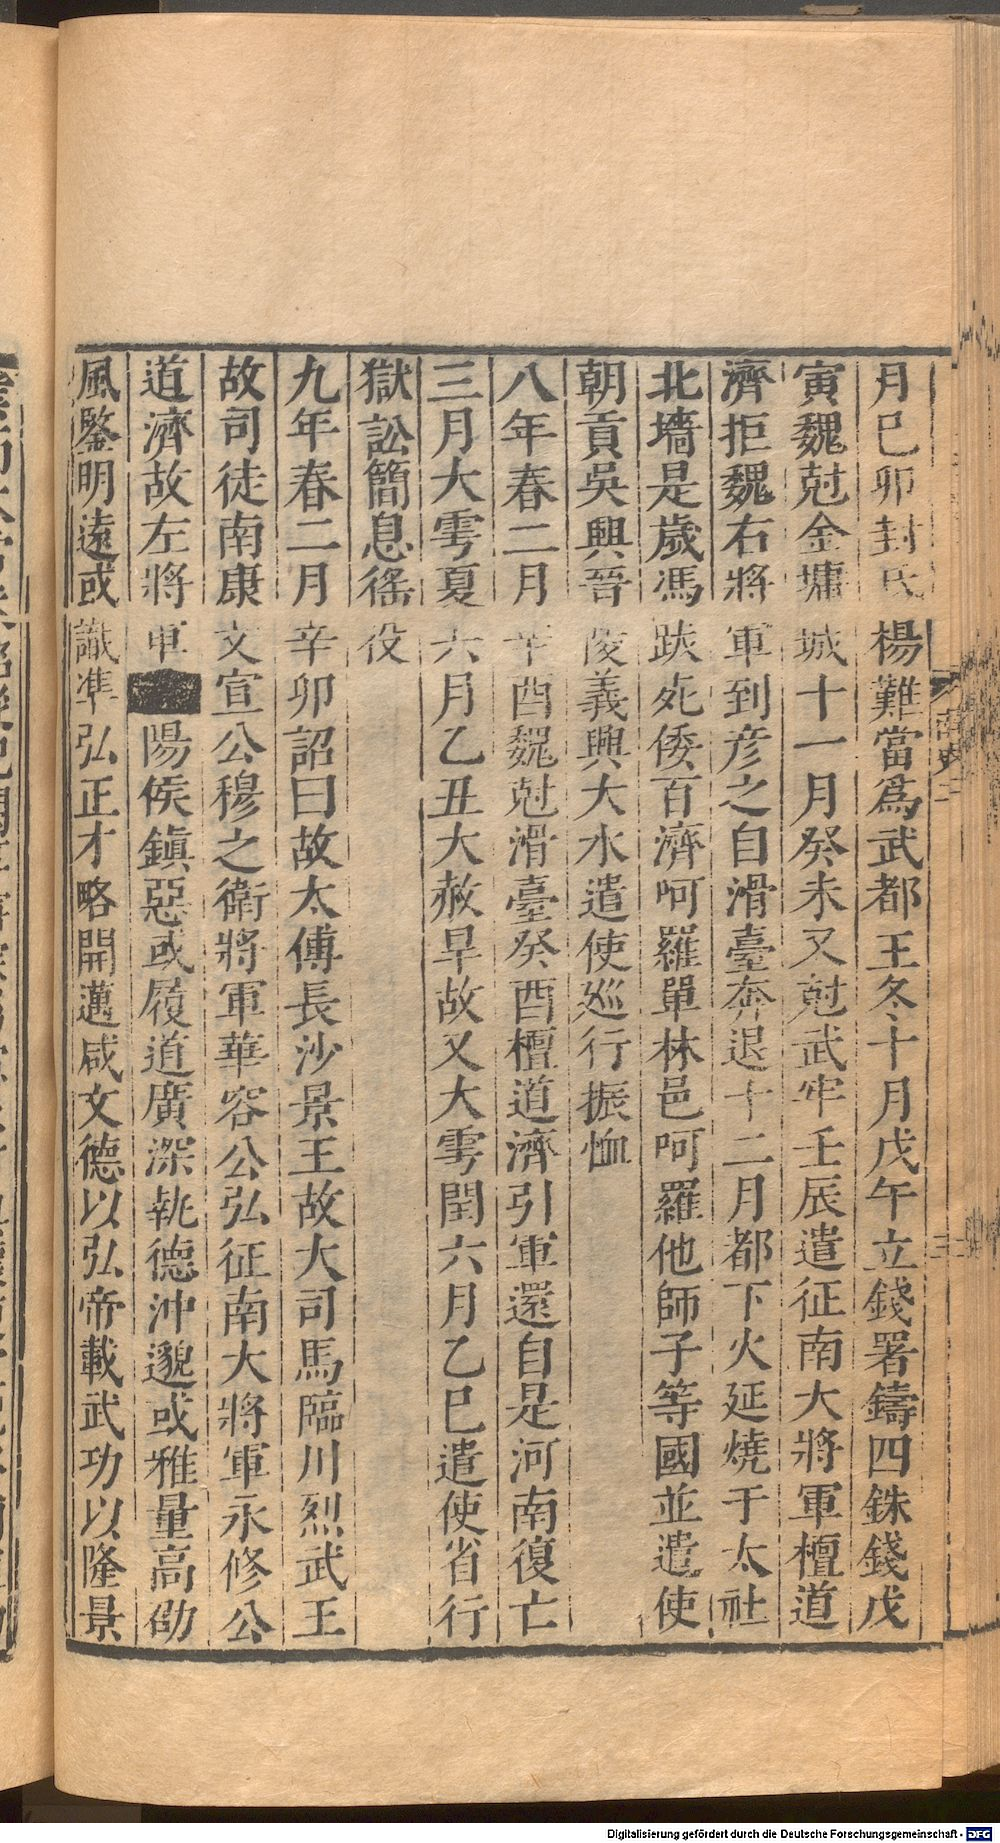 月已卯封氐楊難當爲武都王冬十月戊午立錢署鑄四銖錢戊
寅魏尅金墉城十一月癸未又尅武牢壬辰遣征南大將軍檀道
濟拒魏右將軍到彦之自滑臺奔退十二月都下火延燒于太社
北墻是歲馮跋死倭百濟呵羅單林邑呵羅他師子等國並遣使
朝貢吳興晉陵義興大水遣使廵行振恤
八年春二月辛酉魏尅滑臺癸酉檀道濟引軍還自是河南復亡
三月大雩夏六月乙丑大赦旱故又大雩閏六月乙巳遣使省行
獄訟簡息徭役
九年春二月辛卯詔曰故太傅長沙景王故大司馬臨川烈武王
故司徒南康文宣公穆之衛將軍華容公弘征南大將軍永修公
道濟故左將軍陽侯鎮惡或履道廣深執德沖邈或雅量高劭
風鑒明遠或識準弘正才略開邁咸文德以弘帝載武功以隆景
南史二
三
Digitalisierung gefördert durch die Deutsche Forschungsgemeinschaft - DFG